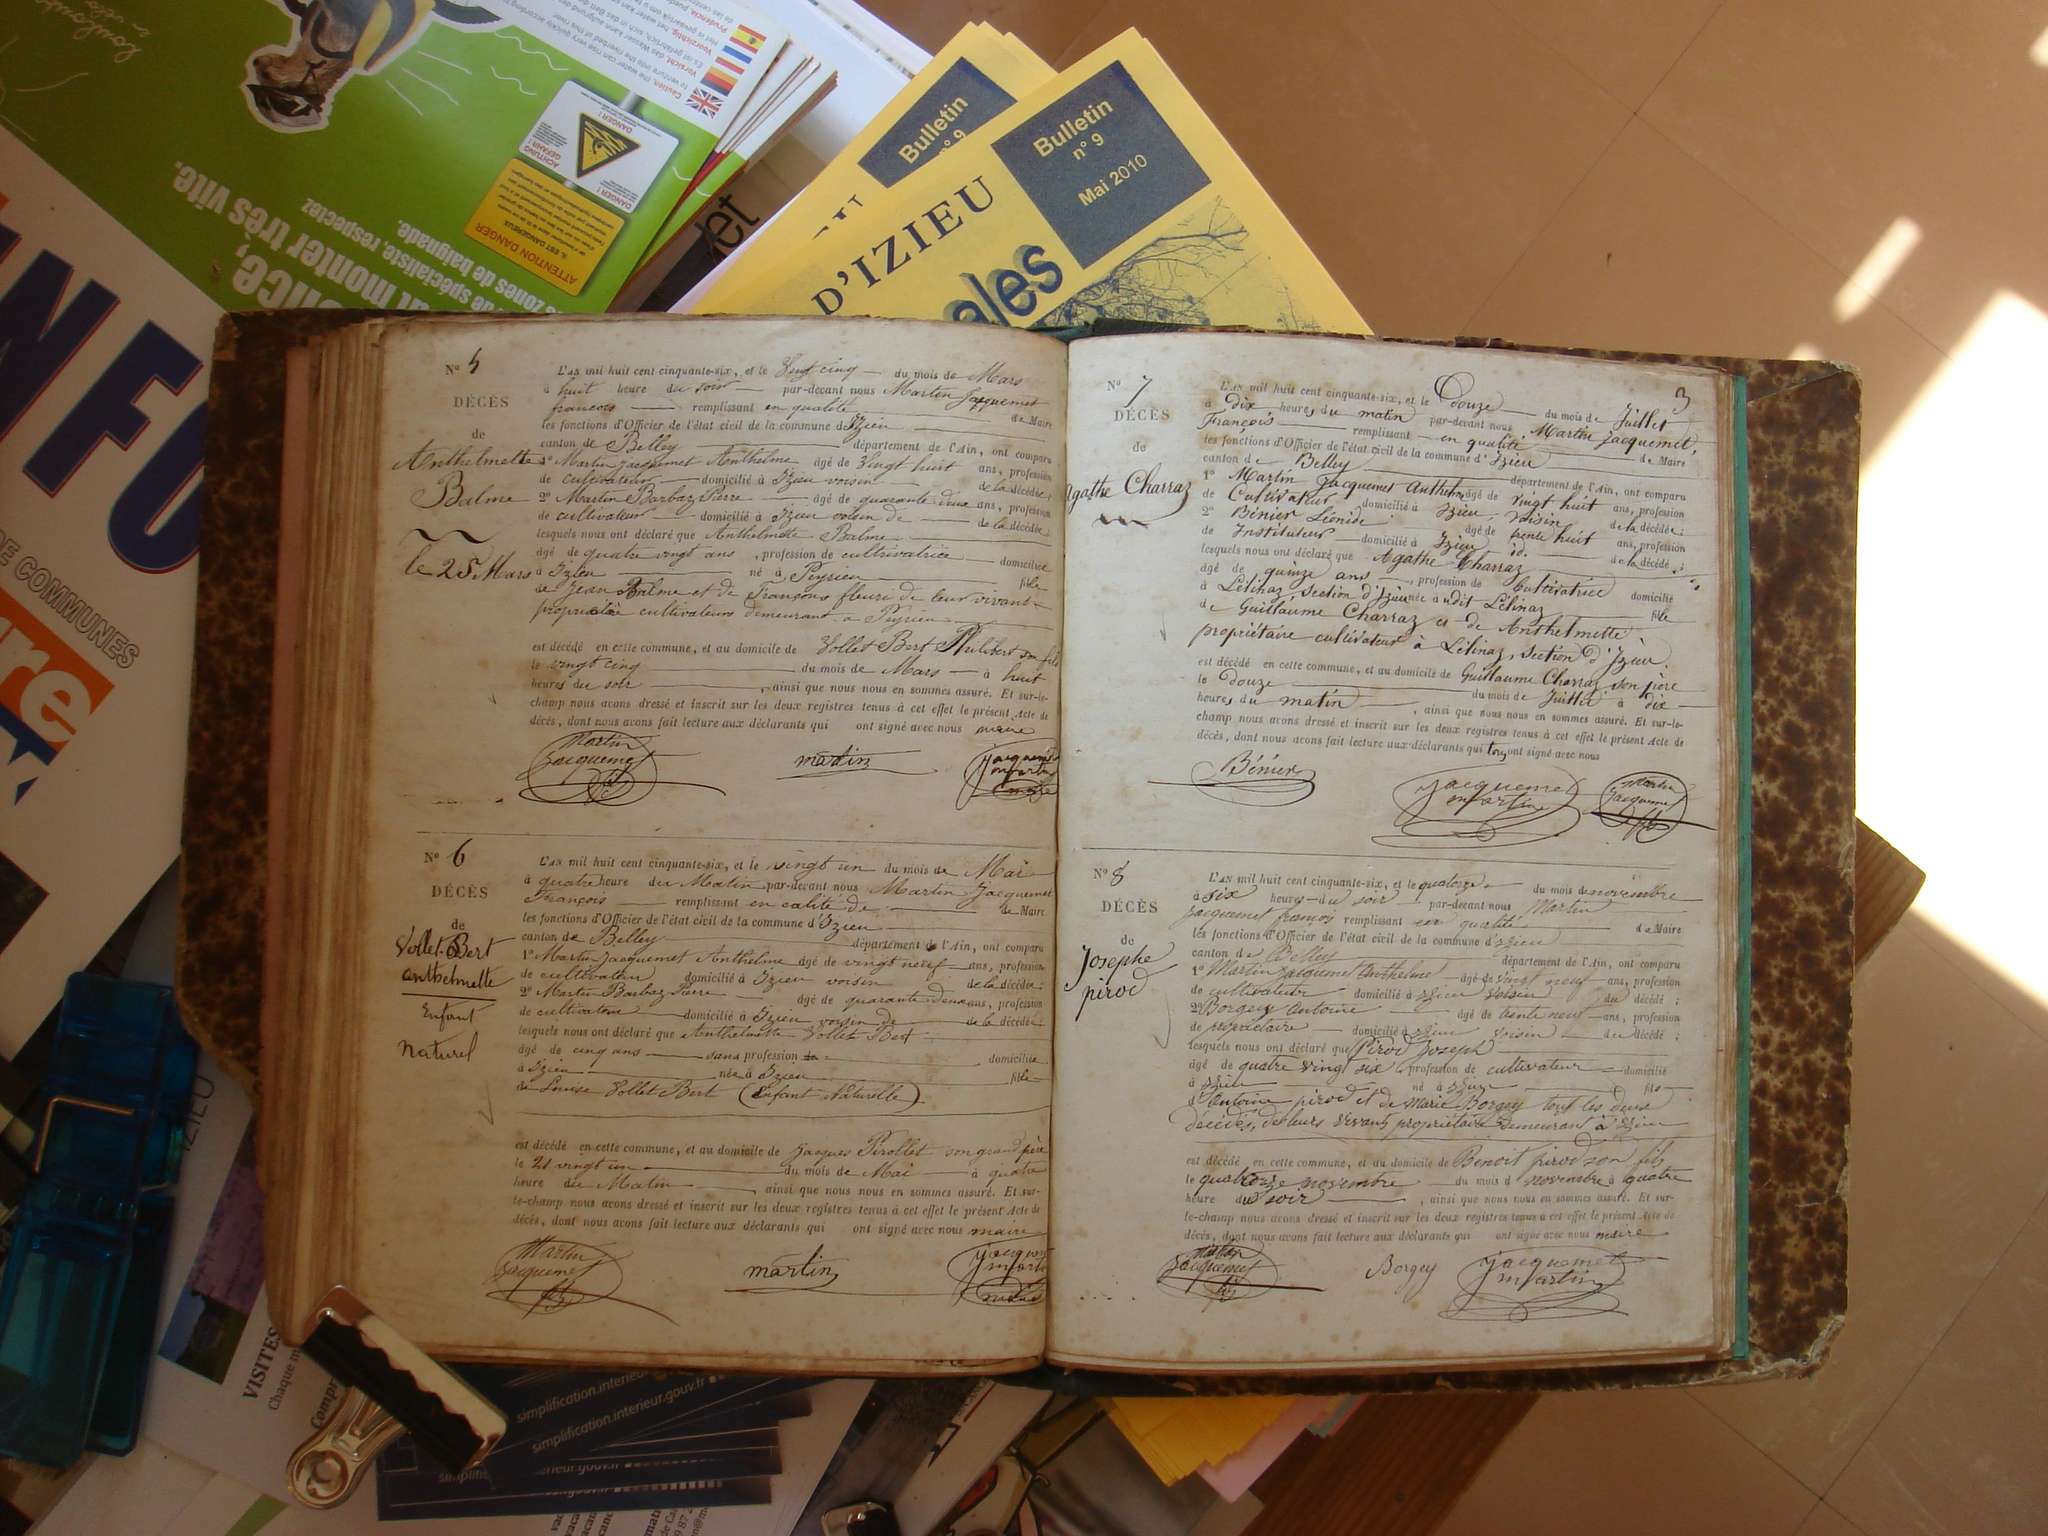 Caution, the water can rise very quickly according to
to venture into the riverbed of this river
Prudencia
Voorzichtig, het water kan
Vorsicht, das Wasser kann aufgrund der
DANGER !
ACHTUNG
GEFAHR !
ATTENTION DANGER
IL EST DANGEREUX
monter très vite.
de spécialiste, respectez
zones de baignade.
Bulletin
n° 9
Bulletin
n° 9
Mai 2010
D'IZIEU
ales
INFO
DE COMMUNES
N° 5
DÉCÈS
de
Anthelmette
Balme
le 25 Mars
L'AN mil huit cent cinquante-six, et le Vingt cinq du mois de Mars
à huit heure du soir par-devant nous Martin Jacquemet
françois remplissant en qualité de Maire
les fonctions d'Officier de l'état civil de la commune d'Izieu
canton de Belley département de l'Ain, ont comparu
1° Martin Jacquemet Anthelme âgé de Vingt huit ans, profession
de cultivateur domicilié à Izieu voisin de la décédée ;
2° Martin Barbaz Pierre âgé de quarante deux ans, profession
de cultivateur domicilié à Izieu voisin de de la décédée
lesquels nous ont déclaré que Anthelmette Balme
âgé de quatre vingt ans , profession de cultivatrice domiciliée
à Izieu né à Peyrieu fille
de Jean Balme et de Françoise fleuri de leur vivant
propriétaire cultivateurs demeurant à Peyrieu
est décédé en cette commune, et au domicile de Vollet Bert Philibert son fils
le vingt cinq du mois de Mars à huit
heures du soir , ainsi que nous nous en sommes assuré. Et sur-le-
champ nous avons dressé et inscrit sur les deux registres tenus à cet effet le présent Acte de
décès, dont nous avons fait lecture aux déclarants qui ont signé avec nous maire
Martin
Jacquemet
fils
martin
jacquemet
martin
maire
N° 6
DÉCÈS
de
Vollet-Bert
anthelmette
Enfant
Naturel
L'AN mil huit cent cinquante-six, et le vingt un du mois de Mai
à quatre heure du Matin par-devant nous Martin Jacquemet
François remplissant en calité de de Maire
les fonctions d'Officier de l'état civil de la commune d'Izieu
canton de Belley département de l'Ain, ont comparu
1° Martin Jacquemet Anthelme âgé de vingt neuf ans, profession
de cultivateur domicilié à Izieu voisin de la décédée ;
2° Martin Barbaz Pierre âgé de quarante deux ans, profession
de cultivateur domicilié à Izieu voisin de de la décédée
lesquels nous ont déclaré que Anthelmette Vollet Bert
âgé de cinq ans sans profession domiciliée
à Izieu née à Izieu fille
de Louise Vollet Bert (Enfant Naturelle)
est décédé en cette commune, et au domicile de Jacques Pirollet son grand père
le 21 vingt un du mois de Mai à quatre
heure du Matin ainsi que nous nous en sommes assuré. Et sur-
le-champ nous avons dressé et inscrit sur les deux registres tenus à cet effet le présent Acte de
décès, dont nous avons fait lecture aux déclarants qui ont signé avec nous maire
Martin
Jacquemet
fils
martin
3
N° 7
DÉCÈS
de
Agathe Charraz
L'AN mil huit cent cinquante-six, et le Douze du mois de Juillet
à dix heures du matin par-devant nous Martin Jacquemet,
François remplissant en qualité de Maire
les fonctions d'Officier de l'état civil de la commune d'Izieu
canton de Belley département de l'Ain, ont comparu
1° Martin Jacquemet Anthelme âgé de vingt huit ans, profession
de Cultivateur domicilié à Izieu, voisin de la décédée ;
2° Bénier Léonide âgé de trente huit ans, profession
de Instituteur domicilié à Izieu id. de la décédée ;
lesquels nous ont déclaré que Agathe Charraz
âgé de quinze ans , profession de Cultivatrice domicilié
à Lélinaz, section d'Izieu née à udit Lélinaz fille
de Guillaume Charraz et de Anthelmette
propriétaire cultivateur à Lélinaz, section d'Izieu.
est décédé en cette commune, et au domicile de Guillaume Charraz son père
le Douze du mois de Juillet à dix
heures du matin , ainsi que nous nous en sommes assuré. Et sur-le-
champ nous avons dressé et inscrit sur les deux registres tenus à cet effet le présent Acte de
décès, dont nous avons fait lecture aux déclarants qui tous ont signé avec nous
Bénier
jacquemet
martin
Martin
Jacquemet
fils
N° 8
DÉCÈS
de
Josephe
pirod
L'AN mil huit cent cinquante-six, et le quatorze du mois de novembre
à six heures du soir par-devant nous Martin
Jacquemet françois remplissant en qualité de Maire
les fonctions d'Officier de l'état civil de la commune d'izieu
canton de Belley département de l'Ain, ont comparu
1° Martin Jacquemet Anthelme âgé de vingt neuf ans, profession
de cultivateur domicilié à izieu voisin du décédé ;
2° Borgey antoine âgé de trente neuf ans, profession
de propriétaire domicilié à izieu voisin du décédé ;
lesquels nous ont déclaré que Pirod Joseph
âgé de quatre vingt six , profession de cultivateur domicilié
à izieu né à izieu fils
d'Antoine pirod et de Marie Borgey tout les deux
décédés, de leurs vivant propriétaire demeurant à izieu
est décédé en cette commune, et au domicile de Benoit pirod son fils
le quatorze novembre du mois d novembre à quatre
heure du soir , ainsi que nous nous en sommes assuré. Et sur-
le-champ nous avons dressé et inscrit sur les deux registres tenus à cet effet le présent Acte de
décès, dont nous avons fait lecture aux déclarants qui ont signé avec nous maire
Martin
Jacquemet
fils
Borgey
jacquemet
martin
IZIEU
VISITES
Chaque m
simplification.interieur.gouv.fr
simplification.interieur.gouv.fr